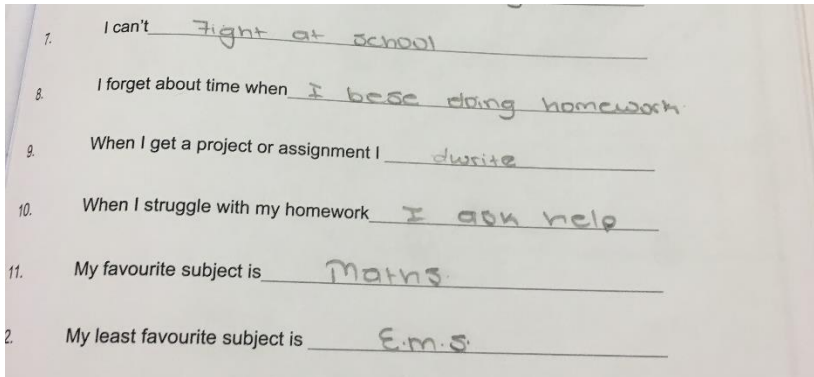 7. I can't Fight at school
8. I forget about time when I bese doing homework.
9. When I get a project or assignment I dwrite
10. When I struggle with my homework I ask help
11. My favourite subject is Maths.
2. My least favourite subject is E.m.s.